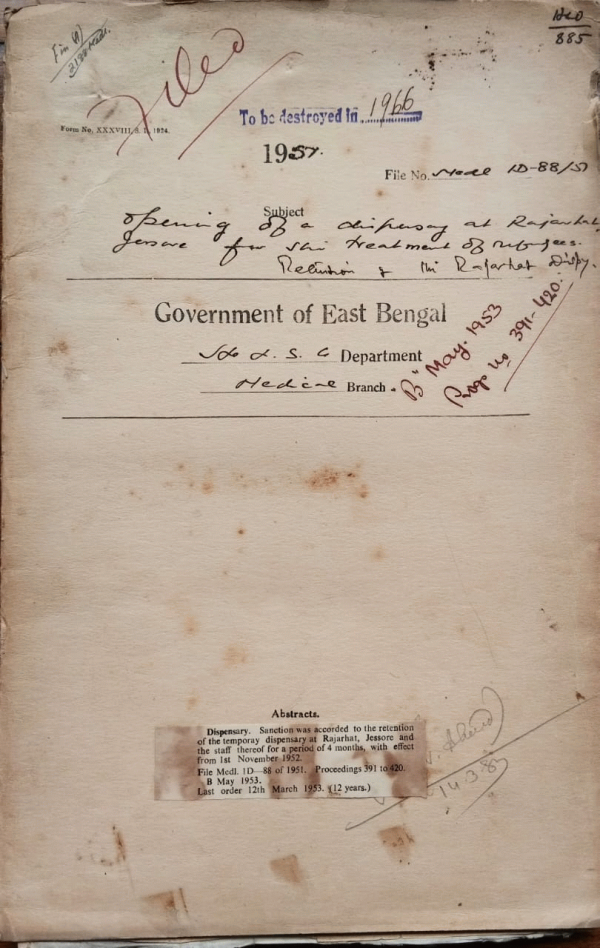 H&D
885
Filed
Form No. XXXVIII, 1824.
To be destroyed in 1966
1951.
File No. Medl 1D-88/51
Subject
Opening of a dispensary at Rajarhat,
Jessore for the treatment of refugees.
Retention of the Rajarhat Dispy.
Government of East Bengal
H. & L. S. G Department
Medical Branch.
"B" May. 1953
Progs No 391-420.
Abstracts.
Dispensary. Sanction was accorded to the retention
of the temporay dispensary at Rajarhat, Jessore and
the staff thereof for a period of 4 months, with effect
from 1st November 1952.
File Medl. 1D—88 of 1951. Proceedings 391 to 420.
B May 1953.
Last order 12th March 1953. (12 years.)
14.3.87